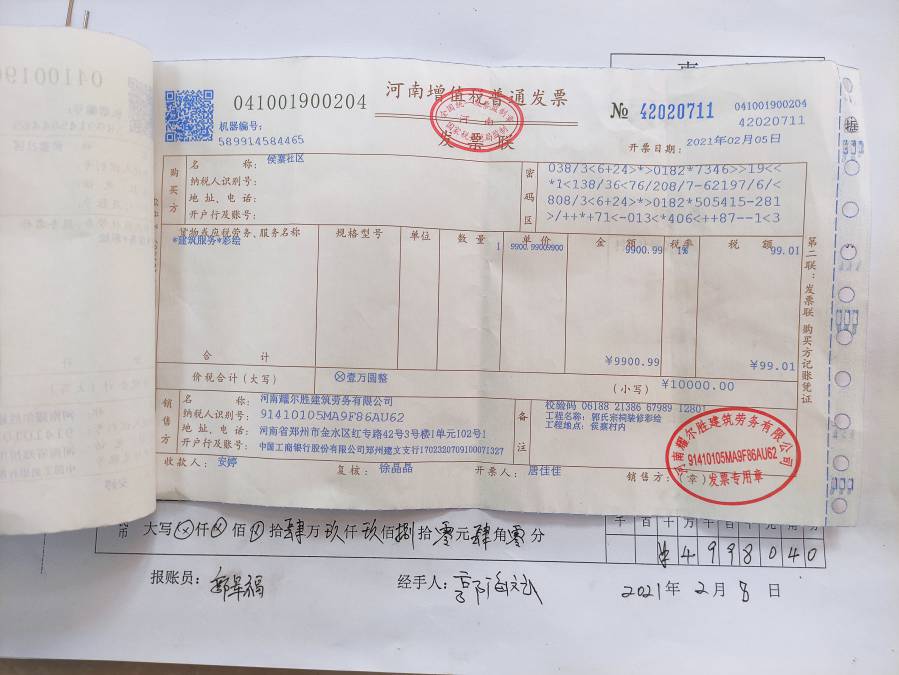 041001900204
河南增值税普通发票
发票联
全国统一发票监制章
河南
国家税务总局监制
№ 42020711
041001900204
42020711
机器编号:
589914584465
开票日期: 2021年02月05日
购买方
名 称: 侯寨社区
纳税人识别号:
地 址、电 话:
开户行及账号:
密码区
038/3<6+24>*>0182*7346>>19<<
*1<138/36<76/208/7-62197/6/<
808/3<6+24>*>0182*505415-281
>/++*+71<-013<*406<++87--1<3
货物或应税劳务、服务名称 规格型号 单位 数 量 单 价 金 额 税率 税 额
*建筑服务*彩绘 1 9900.99009900 9900.99 1% 99.01
合 计 ¥9900.99 ¥99.01
价税合计(大写) ⊗壹万圆整 (小写) ¥10000.00
销售方
名 称: 河南耀尔胜建筑劳务有限公司
纳税人识别号: 91410105MA9F86AU62
地 址、电 话: 河南省郑州市金水区红专路42号3号楼1单元102号1
开户行及账号: 中国工商银行股份有限公司郑州建文支行1702320709100071327
备注
校验码 06188 21386 67989 12801
工程名称: 郭氏宗祠装修彩绘
工程地点: 侯寨村内
收款人: 安婷 复核: 徐晶晶 开票人: 唐佳佳 销售方:(章)
河南耀尔胜建筑劳务有限公司
91410105MA9F86AU62
发票专用章
第二联:发票联 购买方记账凭证
大写⊗仟⊗佰⊗拾肆万玖仟玖佰捌拾零元肆角零分
千 百 十 万 千 百 十 元 角 分
¥ 4 9 9 8 0 4 0
报账员: 经手人: 2021年2月8日